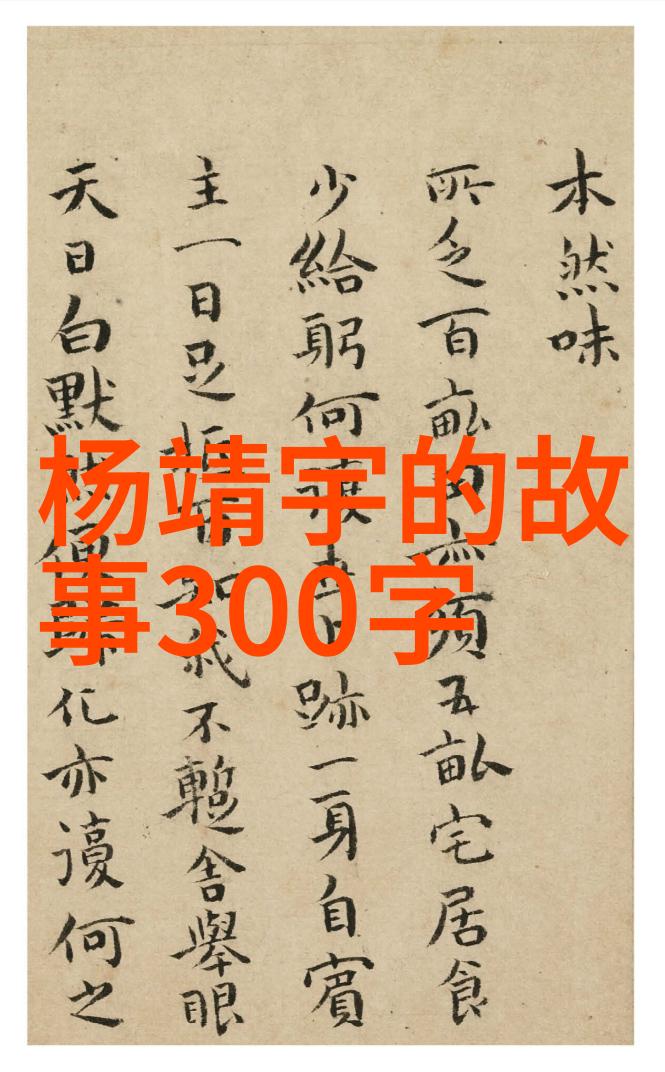 杨靖宇的故
事300字
本然味
所乏百畝須五畝宅居食
少給躬何跡一身自賓
主一日足不暫舍舉眼
天日白默化亦何之